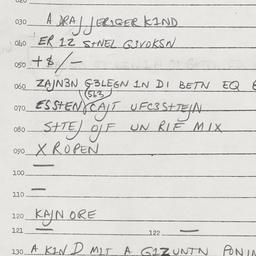 030 A DRAJJERIGER K1ND
040 ER 1Z S+NEL G3VOKSN
050 +$/-
060 ZAJN3N G3LEGN 1N DI BETN EQ
(563)
070 ESSTEN CAJT UFC3S+TEJN
080 S+TEJ OJF UN RIF MIX
090 X ROPEN
100
110
120 KAJN ORE
121 122
130 A K1ND M1T A G1ZUNTN PONIM